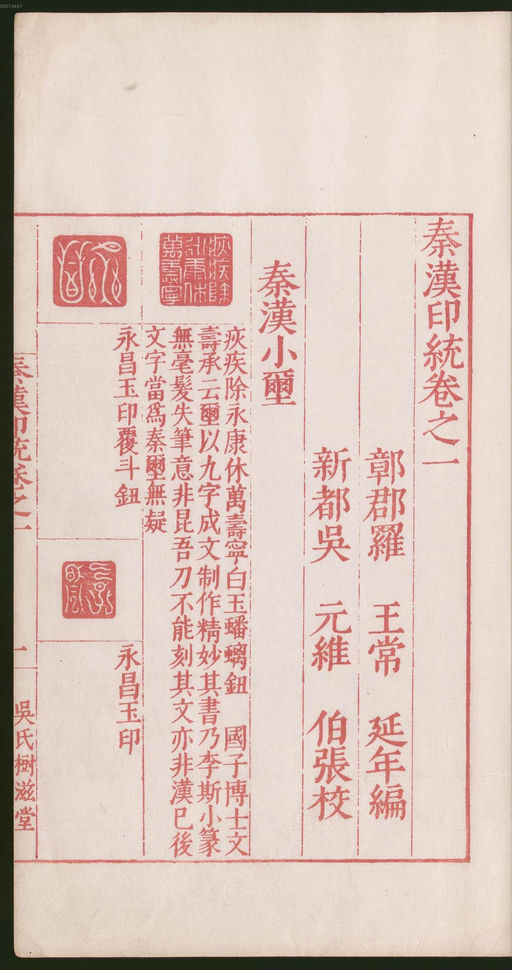 00073447
秦漢印統卷之一
鄣郡羅 王常 延年編
新都吳 元維 伯張校
秦漢小璽
疢疾除永康休萬壽寧白玉蟠螭鈕 國子博士文
壽承云璽以九字成文制作精妙其書乃李斯小篆
無毫髮失筆意非昆吾刀不能刻其文亦非漢已後
文字當爲秦璽無疑
疢疾除永康休萬壽寧
永昌玉印覆斗鈕
永昌
永昌玉印
永昌
秦漢印統卷之一
一
吳氏樹滋堂